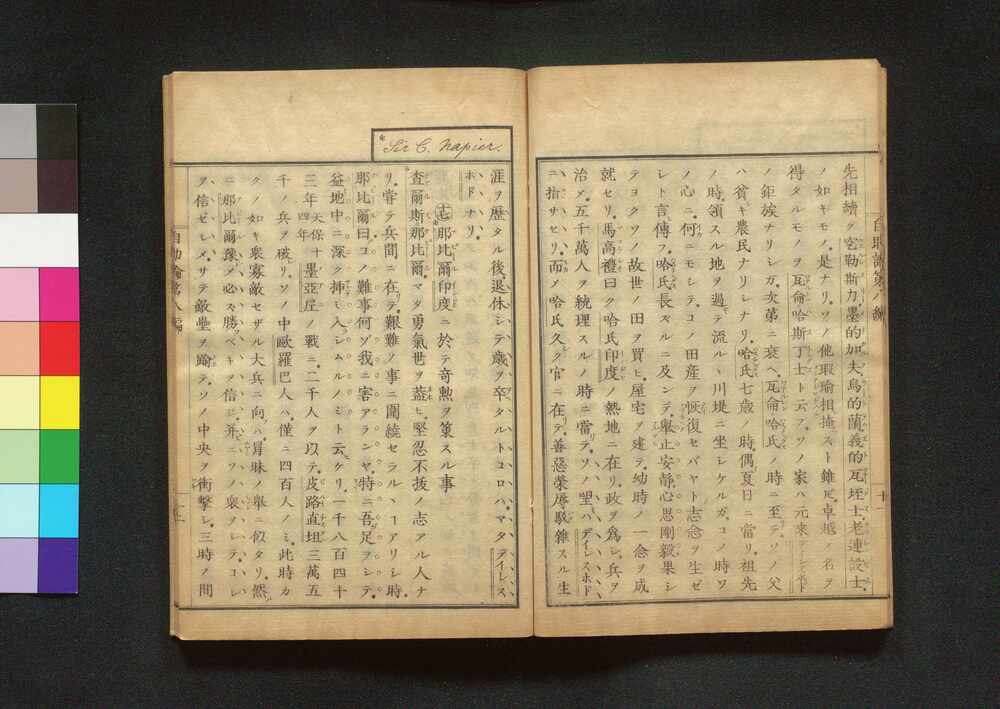 先相續ク宅勒斯力墨的加夫烏的蘭義的瓦坯士老連設士
ノ如キモノ是ナリソノ他瑕瑜相掩スト雖𪜈卓越ノ名ヲ
得タルモノヲ瓦侖哈斯丁士ト云フソノ家ハ元來デーレスホド
ノ鉅族ナリシガ次第ニ衰ヘ瓦侖哈氏ノ時ニ至テソノ父
ハ貧キ農民ナリシナリ哈氏七歳ノ時偶夏日ニ當リ祖先
ノ時領スル地ヲ過テ流ルヽ川堤ニ坐シケルガコノ時ワ
ノ心ニ何ニモシテコノ田産ヲ恢復セバヤト志念ヲ生ゼ
シト言傳フ哈氏長ズルニ及ンデ擧止安靜心思剛毅果シ
テヨクソノ故世ノ田ヲ買ヒ屋宅ヲ建テ幼時ノ一念ヲ成
就セリ馬高禮曰ク哈氏印度ノ熱地ニ在リ政ヲ爲シ兵ヲ
治メ五千萬人ヲ統理スルノ時ニ當テソノ望ハデイレスホド
ニ指サセリ而メ哈氏久ク官ニ在テ善惡榮辱駁雜スル生
Sir C. Napier.
涯ヲ歴タル後退休シテ歳ヲ卒タルトコロハマタデイレス
ホドナリ
十七 那比爾印度ニ於テ奇勲ヲ策スル事
査爾斯那比爾マタ勇氣世ヲ蓋ヒ堅忍不拔ノ志アル人ナ
リ嘗テ兵間ニ在テ艱難ノ事ニ圍繞セラルヽヿアリシ時
那比爾曰コノ難事何ゾ我ニ害アランヤ特ニ吾足ヲシテ
益地中ニ深ク挿ミ入レシムルノミト云ケリ一千八百四十
三年天保十四年墨亞尼ノ戰ニ二千人ヲ以テ皮路直坦三萬五
千ノ兵ヲ破リソノ中歐羅巴人ハ僅ニ四百人ノミ此時カ
クノ如キ衆寡敵セザル大兵ニ向ハ冒昧ノ擧ニ似タリ然
ニ那比爾豫メ必ス勝ベキヲ信ビ并ニソノ衆ヲシテコレ
ヲ信ゼシメサテ敵壘ヲ踰テソノ中央ヲ衝撃シ三時ノ間